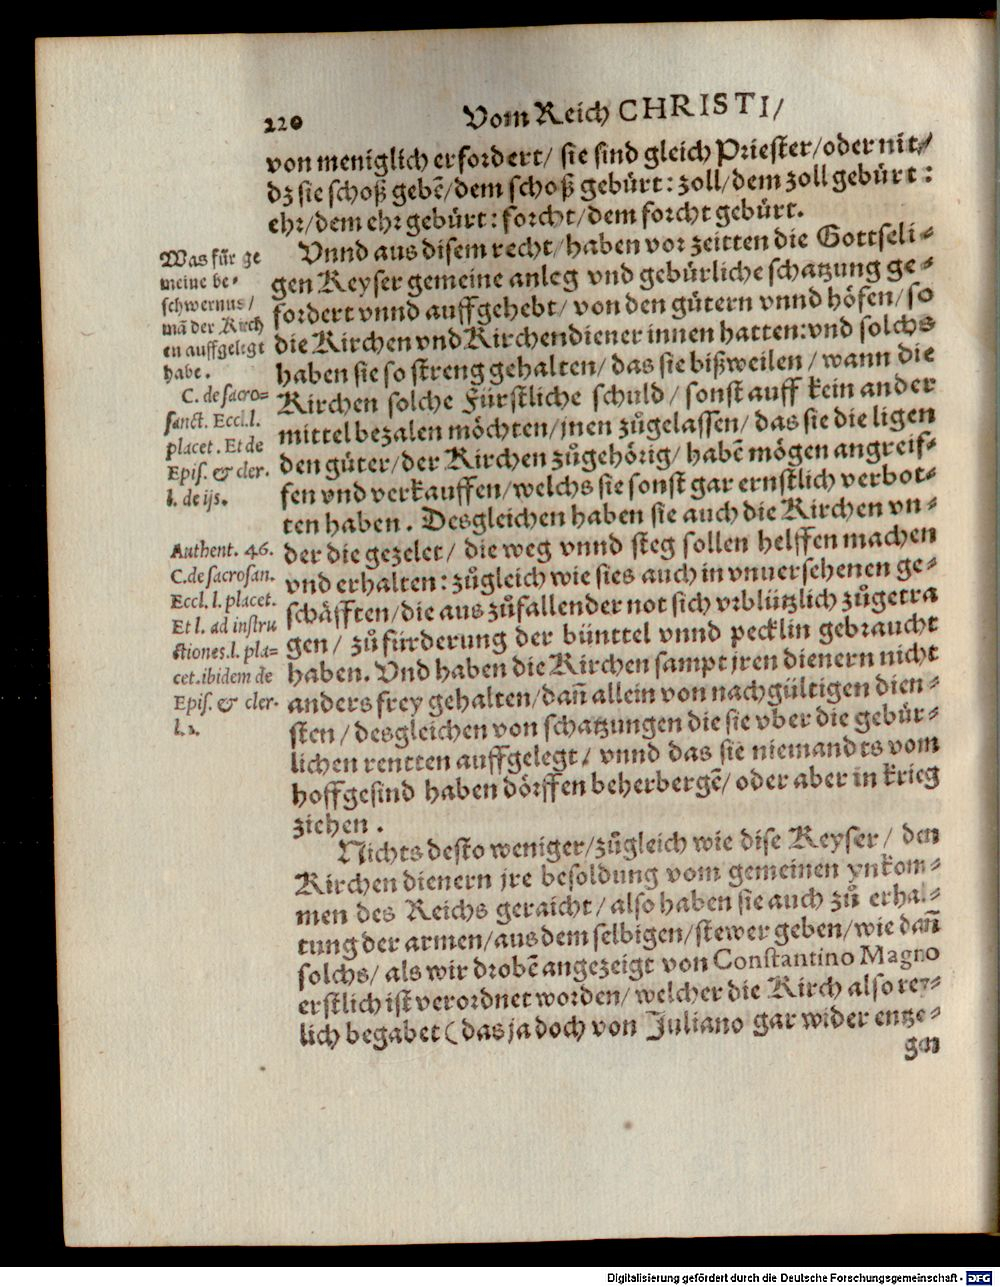 220 Vom Reich CHRISTI/
von meniglich erfordert/ sie sind gleich Priester/oder nit/
dz sie schoß gebẽ/dem schoß gebürt: zoll/dem zoll gebürt:
ehr/dem ehr gebürt: forcht/dem forcht gebürt.
Vnnd aus disem recht/haben vor zeitten die Gottseli⸗
gen Keyser gemeine anleg vnd gebürliche schatzung ge⸗
fordert vnnd auffgehebt/ von den gütern vnnd höfen/so
die Kirchen vnd Kirchendiener innen hatten: vnd solchs
haben sie so streng gehalten/das sie bißweilen/wann die
Kirchen solche Fürstliche schuld/ sonst auff kein ander
mittel bezalen möchten/jnen zůgelassen/das sie die ligen
den güter/der Kirchen zůgehörig/habẽ mögen angreif⸗
fen vnd verkauffen/welchs sie sonst gar ernstlich verbot⸗
ten haben. Desgleichen haben sie auch die Kirchen vn⸗
der die gezelet/ die weg vnnd steg sollen helffen machen
vnd erhalten: zůgleich wie sies auch in vnuersehenen ge⸗
schäfften/die aus zůfallender not sich vrblützlich zůgetra
gen/ zů fürderung der bünttel vnnd pecklin gebraucht
haben. Vnd haben die Kirchen sampt jren dienern nicht
anders frey gehalten/dañ allein von nachgültigen dien⸗
sten/desgleichen von schatzungen die sie vber die gebür⸗
lichen rentten auffgelegt/ vnnd das sie niemandts vom
hoffgesind haben dörffen beherbergẽ/oder aber in krieg
ziehen.
Nichts desto weniger/zůgleich wie dise Keyser/ den
Kirchen dienern jre besoldung vom gemeinen ynkom⸗
men des Reichs geraicht/also haben sie auch zů erhal⸗
tung der armen/aus dem selbigen/stewer geben/wie dañ
solchs/als wir drobẽ angezeigt von Constantino Magno
erstlich ist verordnet worden/welcher die Kirch also rey⸗
lich begabet (das ja doch von Juliano gar wider entze⸗
gen
Was für ge
meine be⸗
schwernus/
mã der Kirch
en auffgelegt
habe.
C. de sacro=
sanct. Eccl. l.
placet. Et de
Epis. & cler.
l. de ijs.
Authent. 46.
C. de sacrosan.
Eccl. l. placet.
Et l. ad instru
ctiones. l. pla=
cet. ibidem de
Epis. & cler.
l. 2.
Digitalisierung gefördert durch die Deutsche Forschungsgemeinschaft - DFG